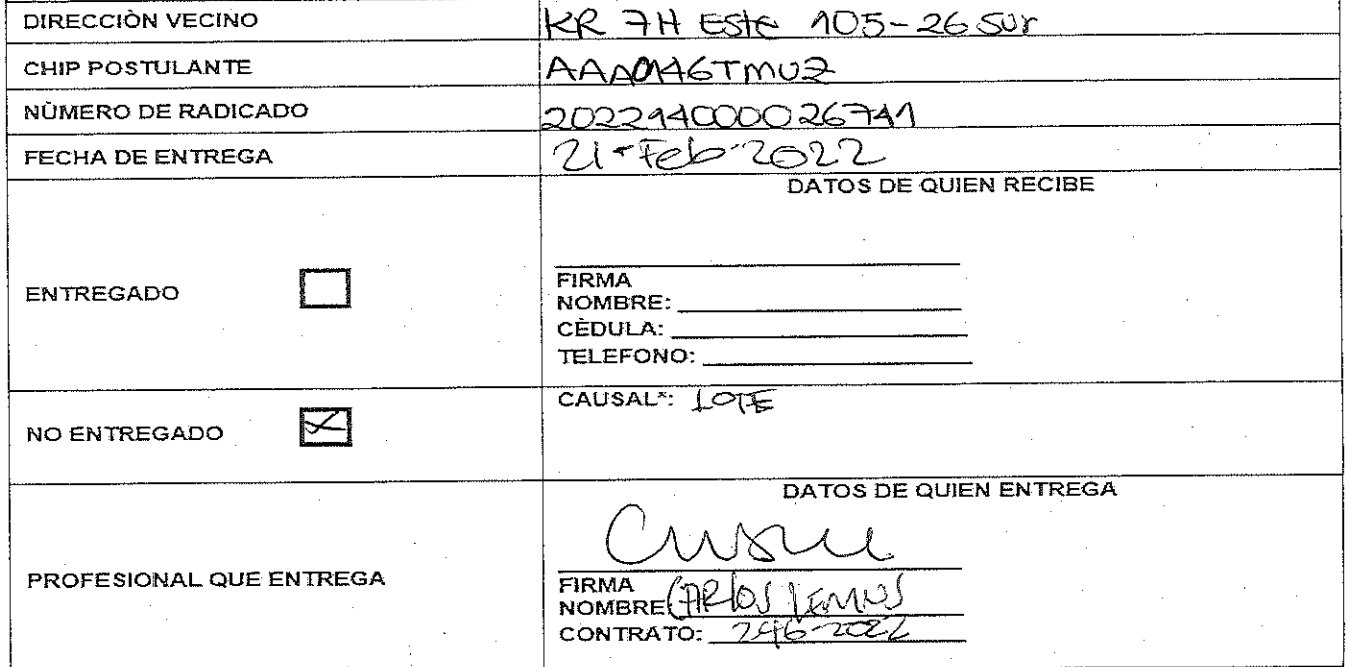 DIRECCIÒN VECINO KR 7H Este 105-26 Sur
CHIP POSTULANTE AAA0146TMUZ
NÙMERO DE RADICADO 202214000026741
FECHA DE ENTREGA 21-Feb-2022
DATOS DE QUIEN RECIBE
ENTREGADO
FIRMA
NOMBRE:
CÈDULA:
TELEFONO:
NO ENTREGADO
CAUSAL*: LOTE
DATOS DE QUIEN ENTREGA
PROFESIONAL QUE ENTREGA
FIRMA
NOMBRE CARlos LEMUS
CONTRATO: 246-2022